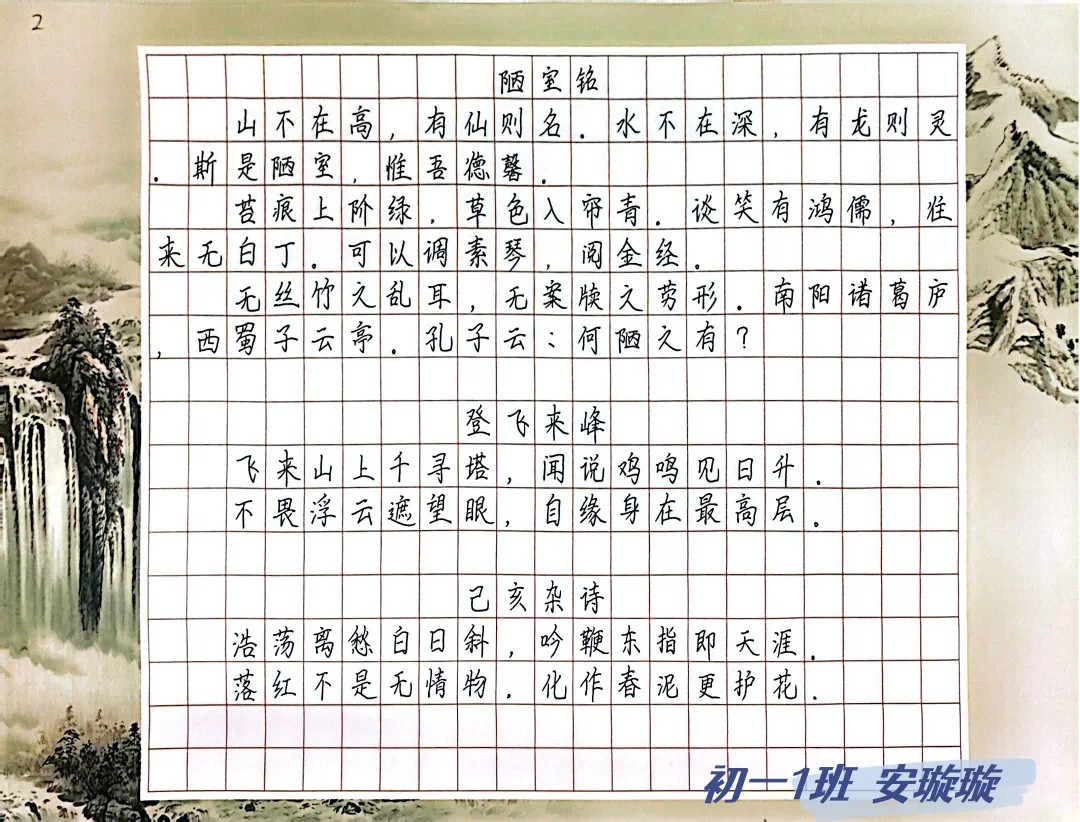 2
陋室铭
山不在高，有仙则名.水不在深，有龙则灵
.斯是陋室，惟吾德馨.
苔痕上阶绿，草色入帘青.谈笑有鸿儒，往
来无白丁.可以调素琴，阅金经.
无丝竹之乱耳，无案牍之劳形.南阳诸葛庐
，西蜀子云亭.孔子云：何陋之有？
登飞来峰
飞来山上千寻塔，闻说鸡鸣见日升.
不畏浮云遮望眼，自缘身在最高层.
己亥杂诗
浩荡离愁白日斜，吟鞭东指即天涯.
落红不是无情物，化作春泥更护花.
初一1班 安璇璇